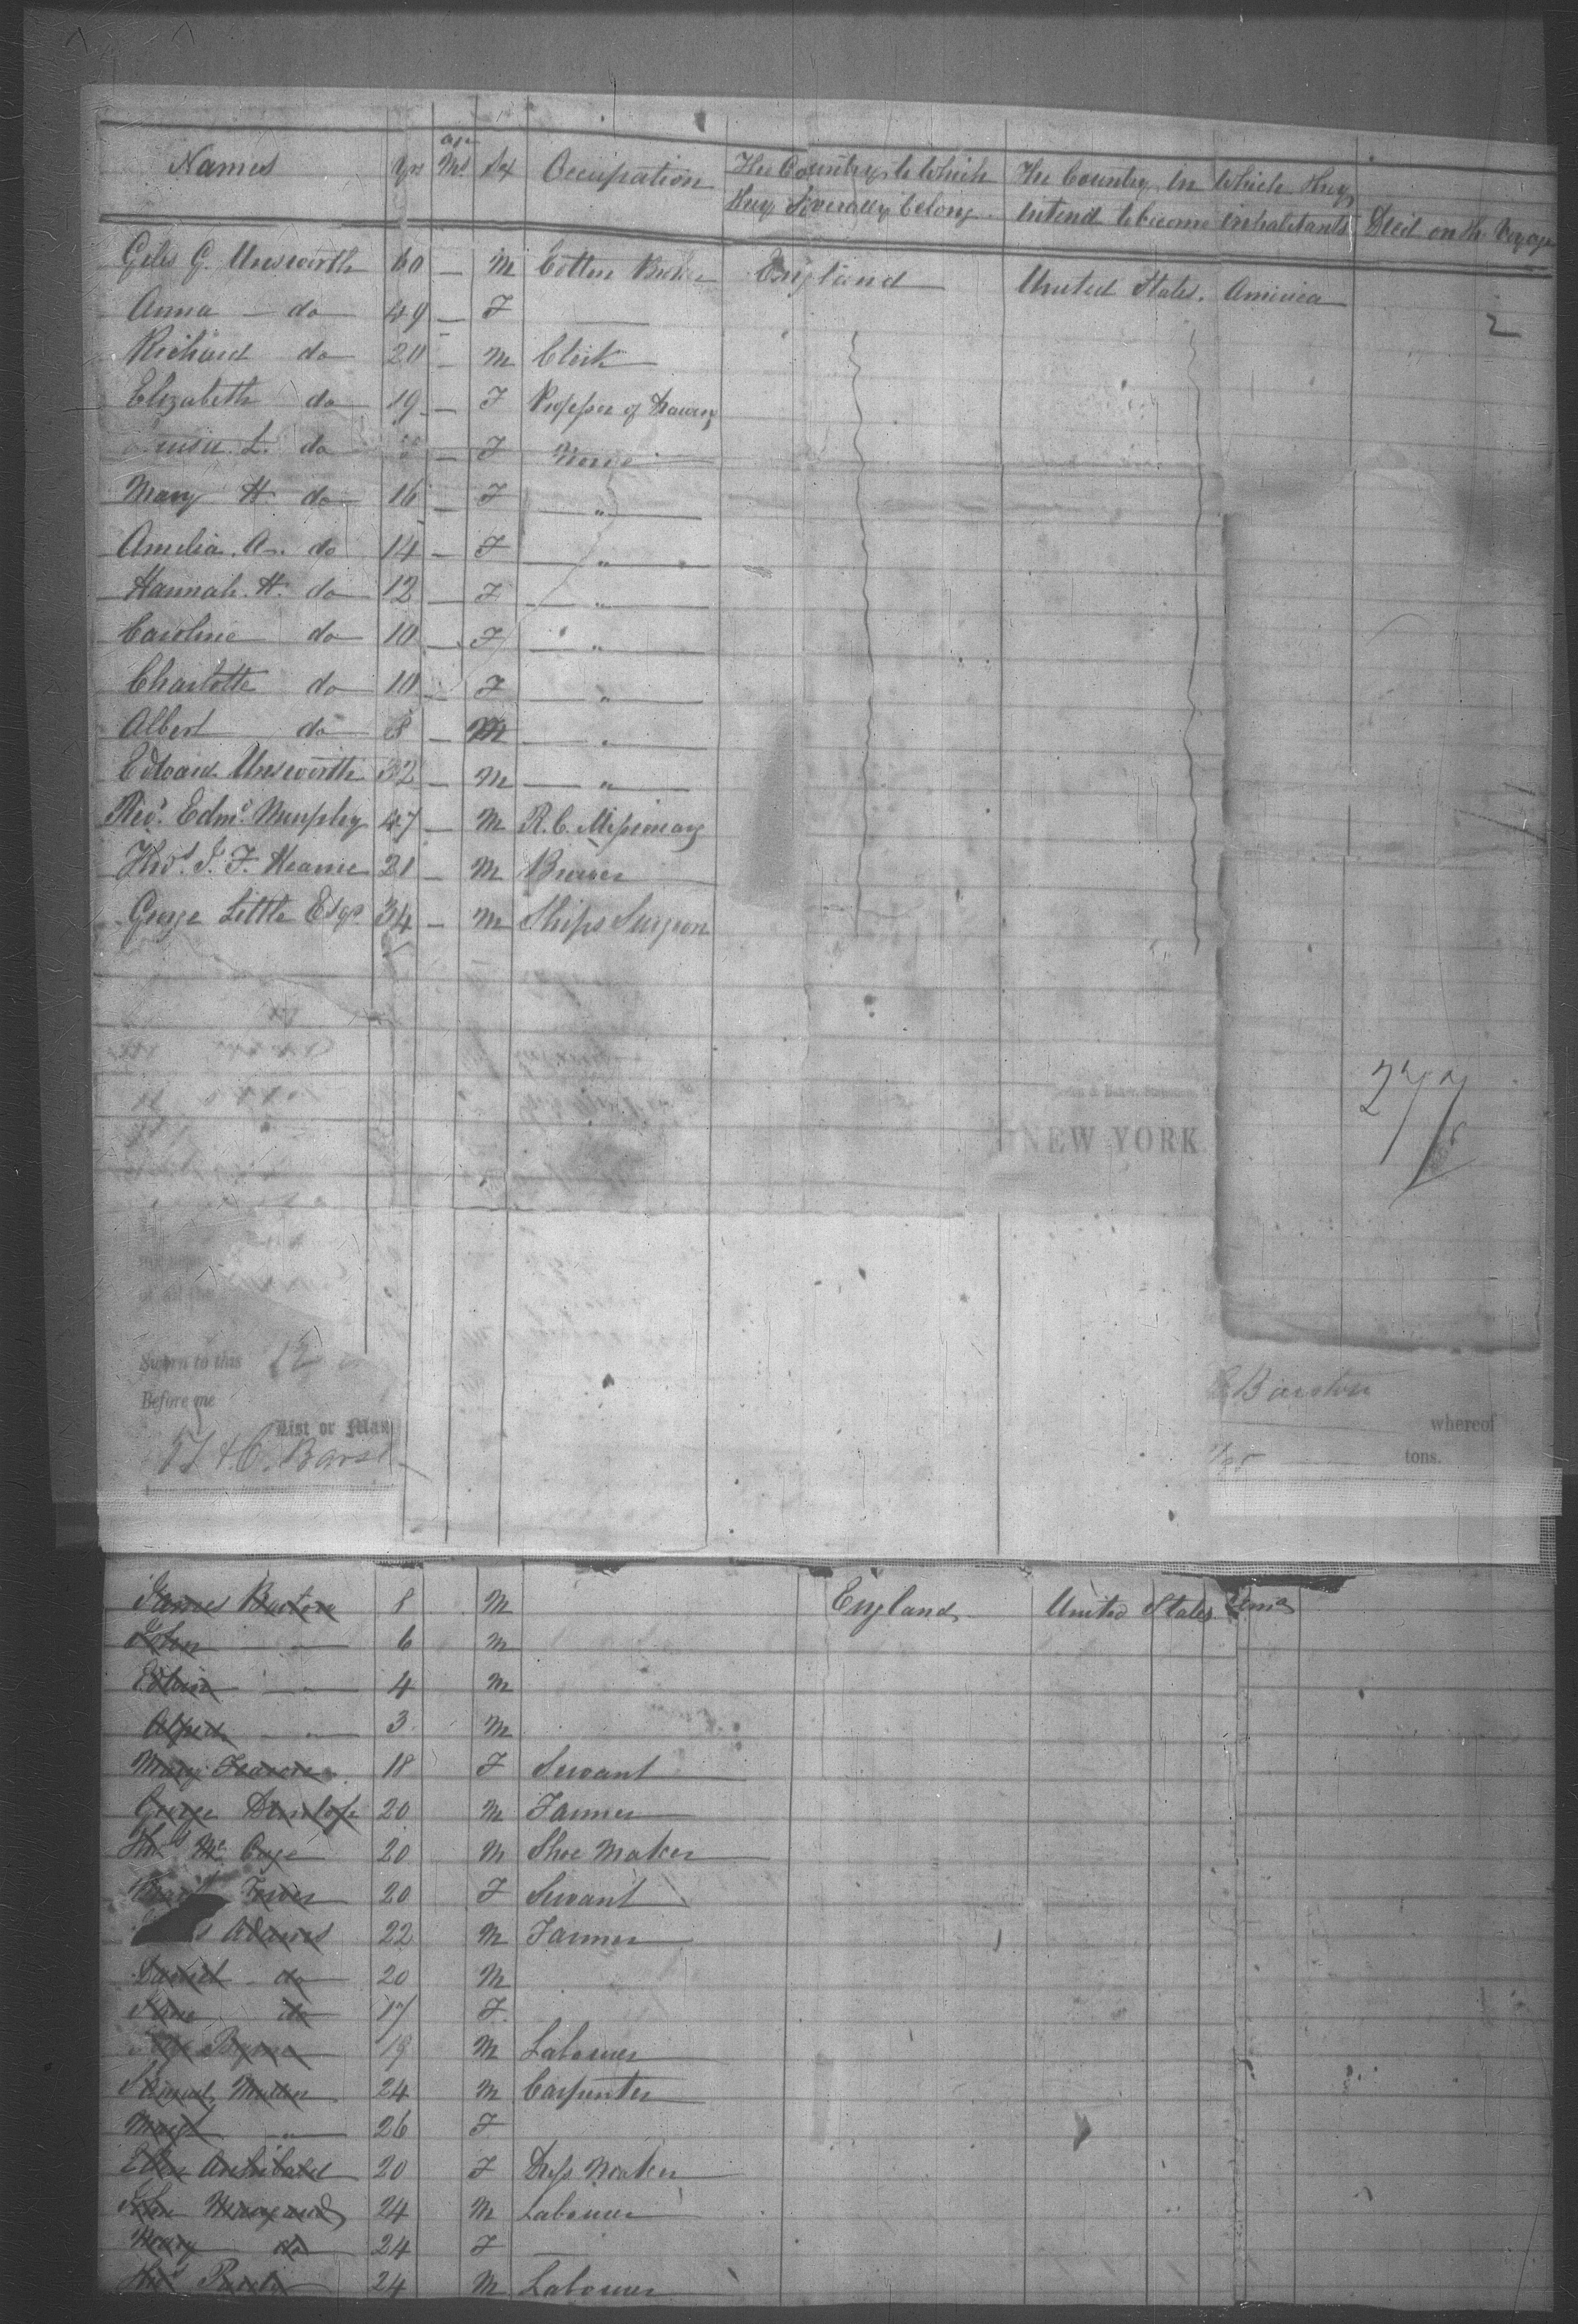 Names Yrs Age Ms Sex Occupation The Country to Which They Severally belong The Country in Which they intend to become inhabitants Died on the Voyage
Giles G. Unsworth 60 — M Cotton Broker England United States. America
Anna — do — 49 — F —
2
Richard do — 20 — M Clerk
Elizabeth do — 19 — F Professor of Drawing
L. do — F None
Mary H. do — 16 — F — " —
Amelia. A. do 14 — F — " —
Hannah. H. do — 12 — F — " —
Caroline do — 10 — F — " —
Charlotte do — 10 — F — " —
Albert do — 8 — M — " —
Edward Unsworth 32 — M — " —
Revd. Edmd. Murphy 47 — M R. C. Missionary
Thos. J. F. Keanie 21 — M Brewer
George Little Esqr 34 — M Ships Surgeon
277
NEW YORK
Sworn to this 12
Before me
List or Man
H & C. Barst
Barstow
whereof
tons.
James Barton 8 M England United States Ama
John — " — 6 M
Edwin — " — 4 M
Alfred — " — 3 M
Mary 18 F Servant
George Dunlop 20 M Farmer
Thos Mc 20 M Shoe Maker
20 F Servant
Adams 22 M Farmer
Daniel do 20 M
Jane do 17 F
Byrne 19 M Labourer
Samuel Miller 24 M Carpenter
— " — 26 F
Ellen Archibald 20 F Dress Maker
John 24 M Labourer
Mary do 24 F —
Thos 24 M Labourer